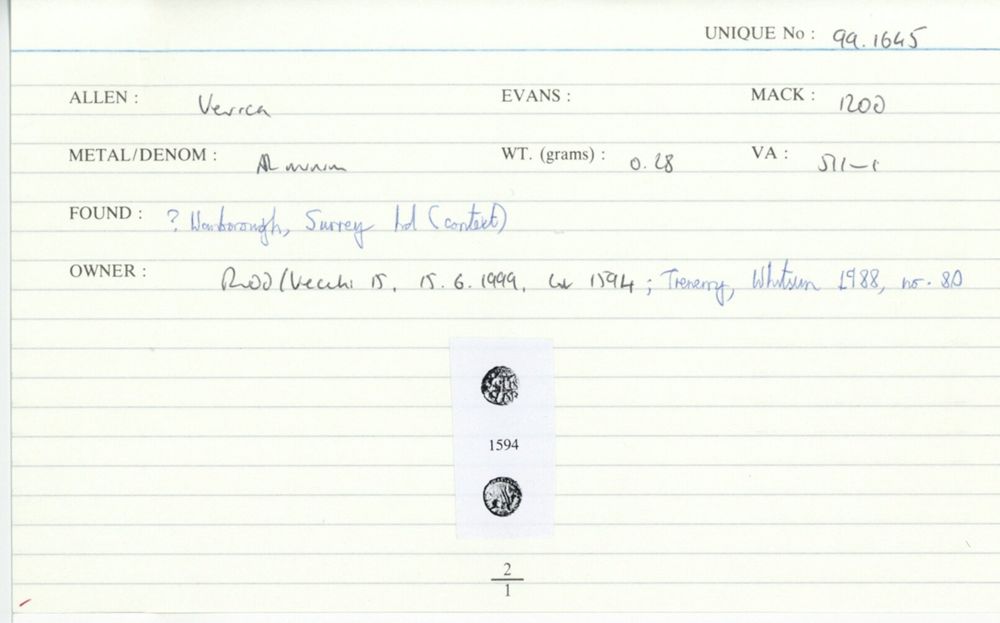 UNIQUE No : 99.1645
ALLEN : Verica EVANS : MACK : 1200
METAL/DENOM : AR minim WT. (grams) : 0.28 VA : 511-1
FOUND : ? Wanborough, Surrey (context)
OWNER : Vecchi 15, 15.6.1999, lot 1594 ; Trenerry, Whitsun 1988, no. 80
1594
2
1